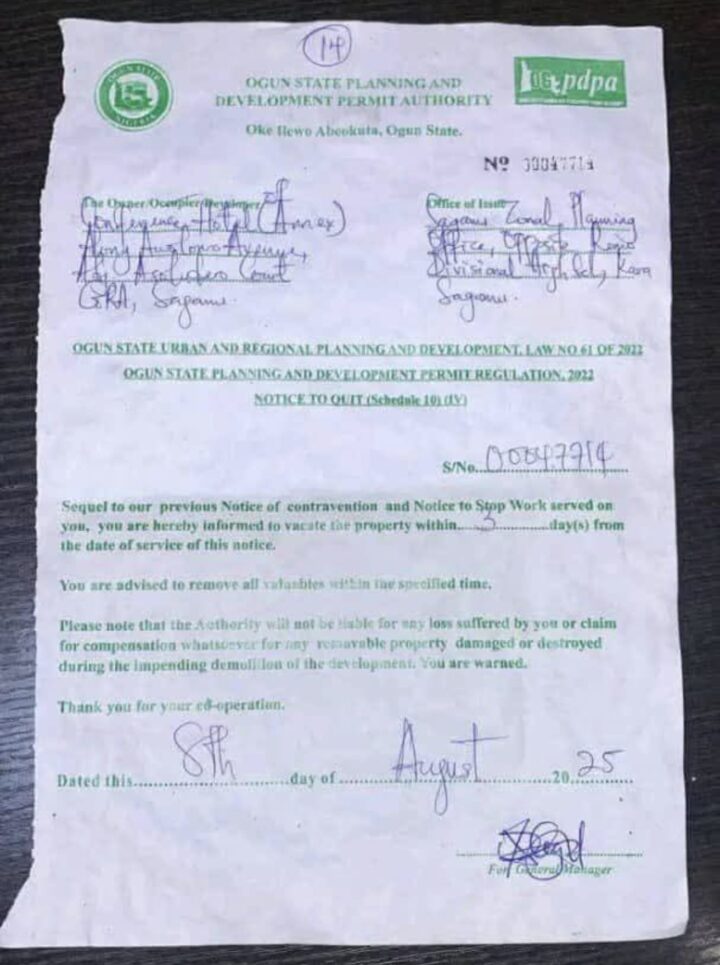 14
OGUN STATE
NIGERIA
OGUN STATE PLANNING AND
DEVELOPMENT PERMIT AUTHORITY
OG pdpa
Oke Ilewo Abeokuta, Ogun State.
Nº 00047714
The Owner/Occupier/Developer of
Conference Hotel (Annex)
Along Avenue,
Court
GRA, Sagamu.
Office of Issue
Sagamu Zonal Planning
Office, Opposite Remo
Divisional High Scl, Kara
Sagamu.
OGUN STATE URBAN AND REGIONAL PLANNING AND DEVELOPMENT, LAW NO 61 OF 2022
OGUN STATE PLANNING AND DEVELOPMENT PERMIT REGULATION, 2022
NOTICE TO QUIT (Schedule 10) (IV)
S/No...00047714
Sequel to our previous Notice of contravention and Notice to Stop Work served on
you, you are hereby informed to vacate the property within....3..........day(s) from
the date of service of this notice.
You are advised to remove all valuables within the specified time.
Please note that the Authority will not be liable for any loss suffered by you or claim
for compensation whatsoever for any removable property damaged or destroyed
during the impending demolition of the development. You are warned.
Thank you for your co-operation.
Dated this........8th........day of........August........20..25........
For General Manager